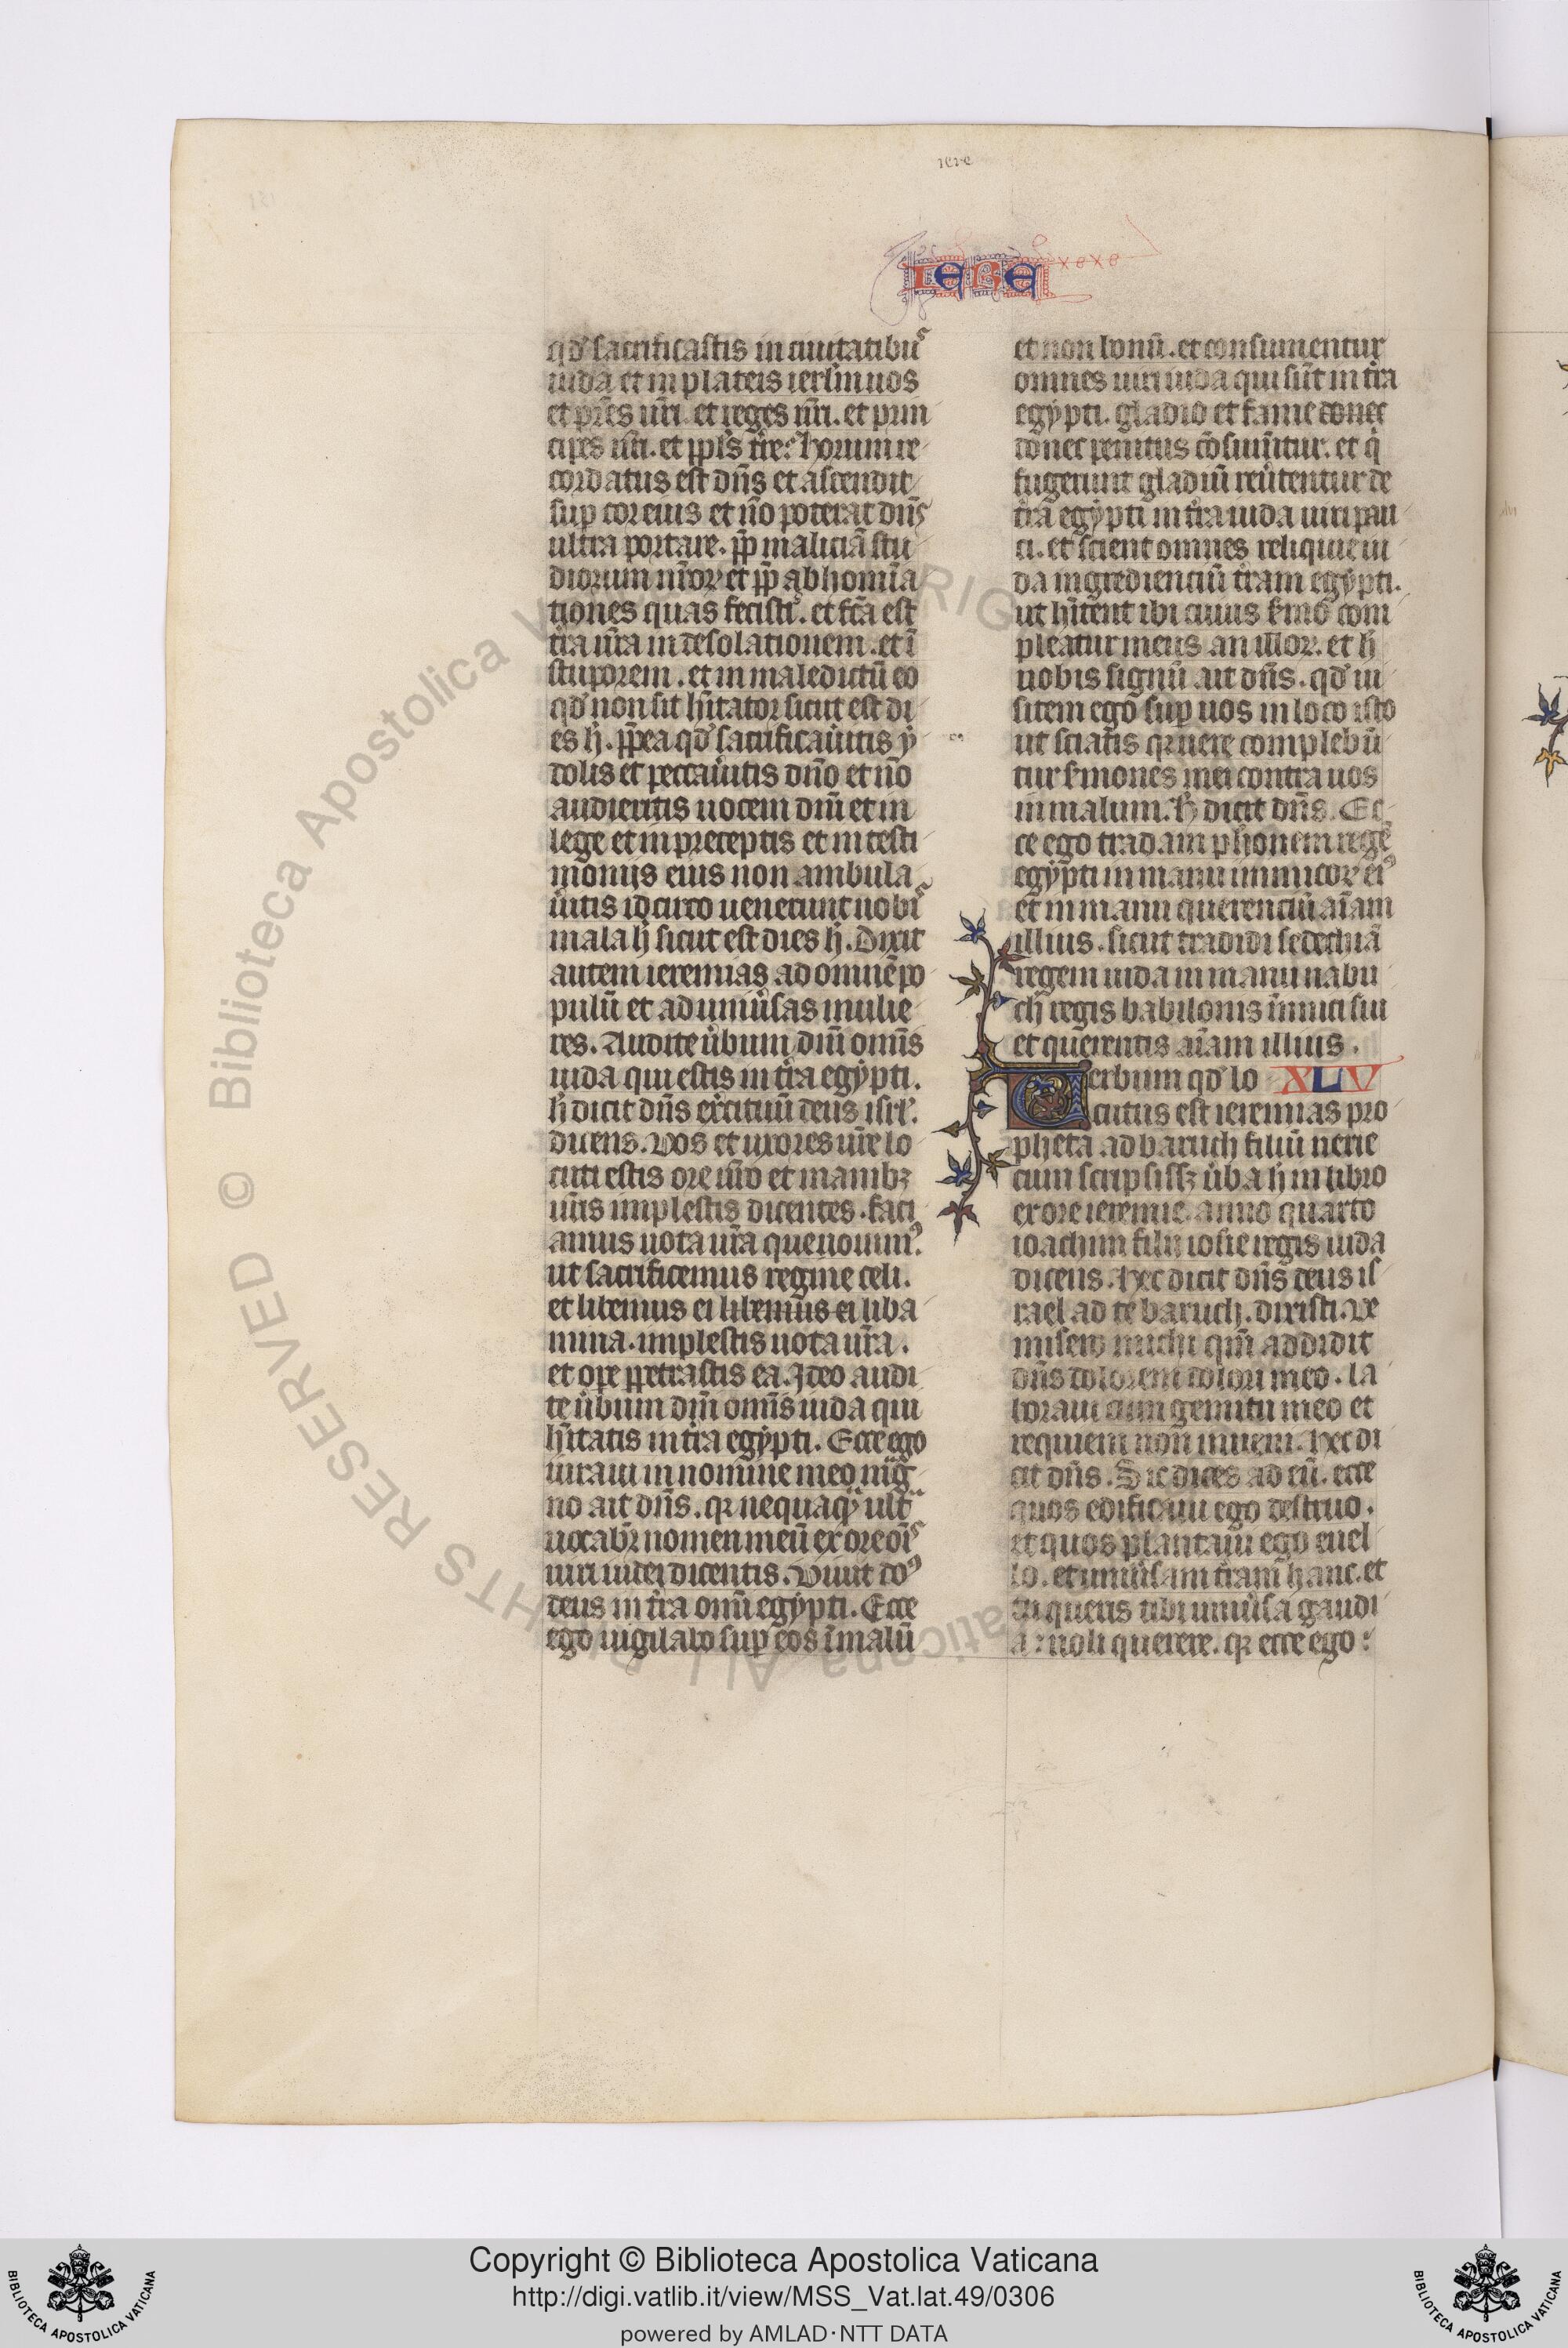 iere
IERE
qđ sacrificastis in ciuitatibus
iuda et in plateis ierlm̄ uos
et pr̄es ur̄i. et reges ur̄i. et prin
cipes ur̄i. et ppl̄s tr̄e: horum re
cordatus est dn̄s et ascendit
sup cor eius et nō poterat dn̄s
ultra portare. pp̄ maliciā stu
diorum ur̄oꝝ et pp̄ abhomina
tiones quas fecistis. et fc̄a est
tr̄a ur̄a in desolationem. et ī
stuporem. et in maledictū eo
qđ non sit hītator sicut est di
es h̄. ppea qđ sacrificaūitis y
dolis et peccaūitis dn̄o et nō
audieritis uocem dn̄i et in
lege et in preceptis et in testi
moniis eius non ambula
ūitis idcirco uenerunt nobis
mala h̄ sicut est dies h̄. Dixit
autem ieremias ad omnē po
pulū et ad uniūsas mulie
res. Audite ūbum dn̄i omīs
iuda qui estis in tr̄a egypti.
h̄ dicit dn̄s exc̄ituum deus isrł.
dicens. Vos et uxores ur̄e lo
cuti estis ore ur̄o et manibꝫ
ur̄is implestis dicentes. faci
amus uota ur̄a que uouimꝰ.
ut sacrificemus regine celi.
et libemus ei libemus ei liba
mina. implestis uota ur̄a.
et ope ppetrastis ea. Ideo audi
te ūbum dn̄i omīs iuda qui
hītatis in tr̄a egypti. Ecce ego
iuraui in nomine meo mag
no ait dn̄s. qꝛ nequaqᷓ ultᷓ
uocabꝛ nomen meū ex ore oīs
uiri iudei dicentis. Viuit doꝰ
deus in tr̄a omī egypti. Ecce
ego uigilabo sup eos ī malū
et non bonū. et consumentur
omnes uiri iuda qui sūt in tr̄a
egypti. gladio et fame donec
donec penitus cōsumātur. et q̇
fugerint gladiū reūtentur de
tr̄a egypti in tr̄a iuda uiri pau
ci. et scient omnes reliquie iu
da ingredienciū tr̄am egypti.
ut hītent ibi cuius s̄mo com
pleatur meus an illoꝝ. et h̄
uobis signū ait dn̄s. qđ ui
sitem ego sup uos in loco isto
ut sciatis qꝛ uere complebū
tur s̄mones mei contra uos
in malum. H̄ dicit dn̄s. Ec
ce ego tradam pharaonem regē
egypti in manu inimicoꝝ eiꝰ
et in manu querenciū aīam
illius. sicut tradidi sedechiā
regem iuda in manu nabu
ch̄ regis babilonis inīmici sui
et querentis aīam illius.
Verbum qđ lo XLV
cutus est ieremias pro
pheta ad baruch filiū nerie
cum scripsissꝫ ūba h̄ in libro
ex ore ieremie. anno quarto
ioachim filii iosie regis iuda
dicens. hec dicit dn̄s deus is
rael ad te baruch. dixisti. Ve
misero michi qm̄ addidit
dn̄s dolorem dolori meo. la
boraui cum gemitu meo et
requiem non inueni. hec di
cit dn̄s. Sic dices ad eū. ecce
quos edificaui ego destruo.
et quos plantaui ego euel
lo. et uniūsam tr̄am hanc. et
tu queris tibi uniūsa gaudi
a: noli querere. qꝛ ecce ego:
Copyright © Biblioteca Apostolica Vaticana
http://digi.vatlib.it/view/MSS_Vat.lat.49/0306
powered by AMLAD·NTT DATA
BIBLIOTECA APOSTOLICA VATICANA
BIBLIOTECA APOSTOLICA VATICANA
© Biblioteca Apostolica Vaticana ALL RIGHTS RESERVED